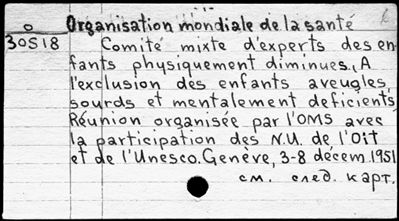 o
Organisation mondiale de la santé
30518
Comité mixte d'experts des en-
fants physiquement diminues, A
l'exclusion des enfants aveugles,
sourds et mentalement deficients
Réunion organisée par l'OMS avec
la participation des N.U. de l'Oit
et de l'Unesco. Genève, 3-8 décem. 1951
см. след. карт.